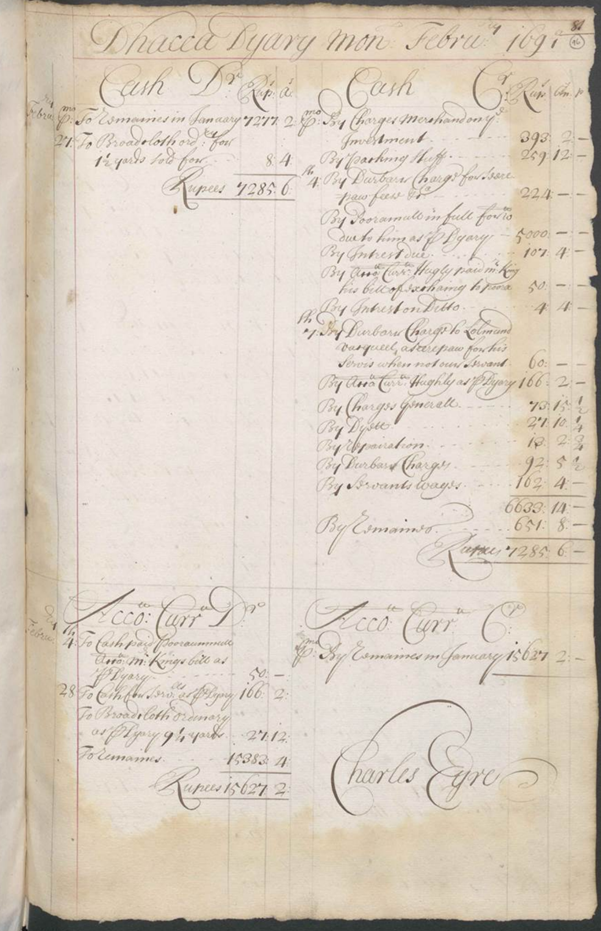 81
Dhacca Dyary Mon: Februry 1691
Cash Dr Rups as
Febru
pmo To Remaines in January 7277 2
27 To Broadcloth ord: for
1½ yards sold for 8 4
Rupees 7285 6
Cash Cr Rups An p
pmo By Charges Merchandon ye
Investment 393 2 -
By packing stuff 259 12 -
4th By Durbar Charge for Seere
paw fees &c 224 - -
By Pooramull in full for
due to him as P Dyary 5000 - -
By Intrest due 107 4 -
By Acco Curr Hugly paid Mr King
his bill of exchaing to pma 50 - -
By Intrest on Ditto 4 4 -
7th By Durbar Charge to Lolmund
Vacqueel, a seerepaw for his
Servis when not our Servant 60 - -
By Acco Curr Hughly as P Dyary 166 2 -
By Charges Generall 73 15 ½
By Dyett 27 10 ¼
By repairation 13 2 ¾
By Durbar Charges 92 5 ½
By Servants wages 162 4 -
6633 14 -
By Remaines 651 8 -
Rupees 7285 6 -
Acco: Curr Dr
Febru
4th To Cash paid Pooraumull
Acco Mr Kings bill as
P Dyary 50 -
28 To Cash for as P Dyary 166 2
To Broadcloth ordinary
as P Dyary 9¼ yards 27 12
To remaines 15383 4
Rupees 15627 2
Acco: Curr Cr
pmo By Remaines in January 15627 2 -
Charles Eyre